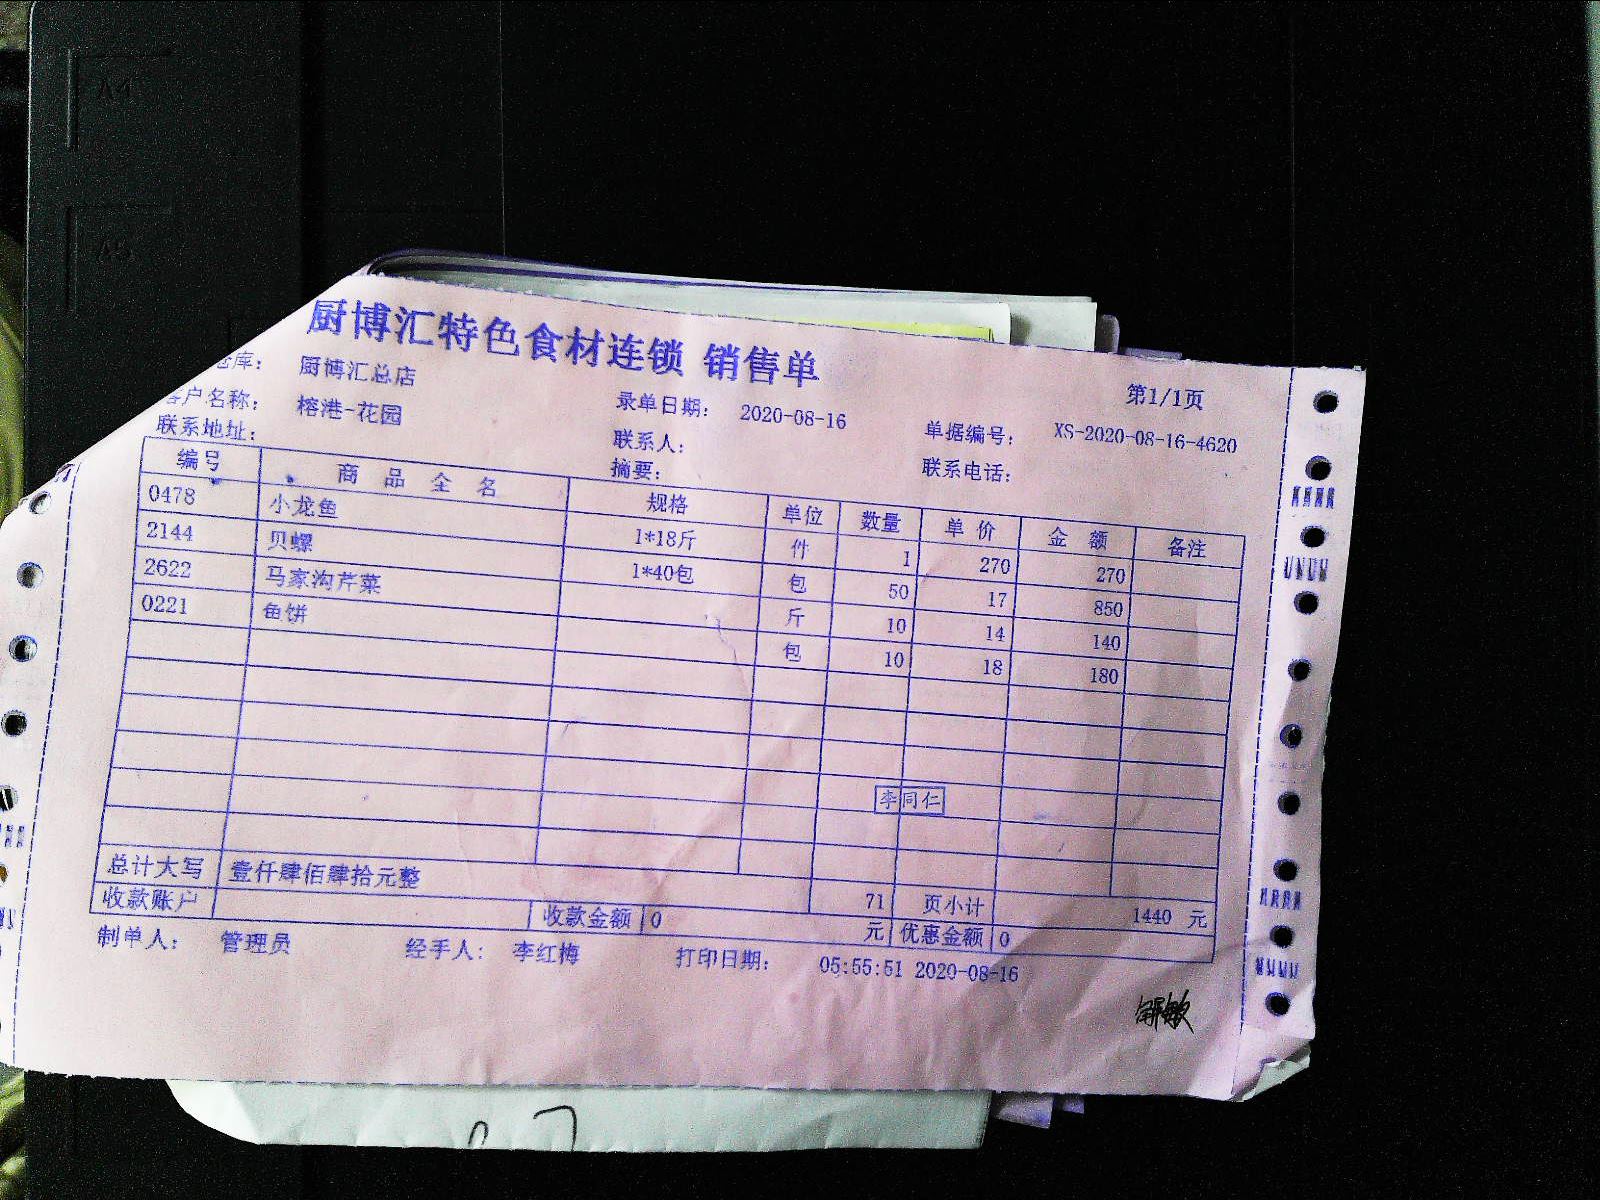 A4
A5
厨博汇特色食材连锁 销售单
仓库： 厨博汇总店 第1/1页
客户名称： 榕港-花园 录单日期： 2020-08-16 单据编号： XS-2020-08-16-4620
联系地址： 联系人： 联系电话：
摘要：
编号 商品全名 规格 单位 数量 单价 金额 备注
0478 小龙鱼 1*18斤 件 1 270 270
2144 贝螺 1*40包 包 50 17 850
2622 马家沟芹菜 斤 10 14 140
0221 鱼饼 包 10 18 180
李同仁
总计大写 壹仟肆佰肆拾元整 71 页小计 1440 元
收款账户 收款金额 0 元 优惠金额 0
制单人： 管理员 经手人： 李红梅 打印日期： 05:55:51 2020-08-16